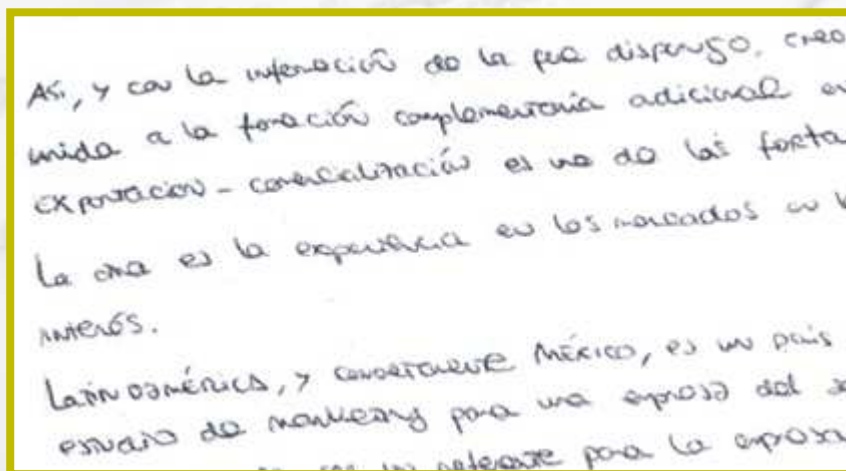 Así, y con la información de la que dispongo, creo
unida a la formación complementaria adicional en
exportación - comercialización es una de las forta
La otra es la experiencia en los mercados en l
interés.
Latinoamérica, y concretamente México, es un país
estudio de marketing para una empresa del se
un referente para la empresa